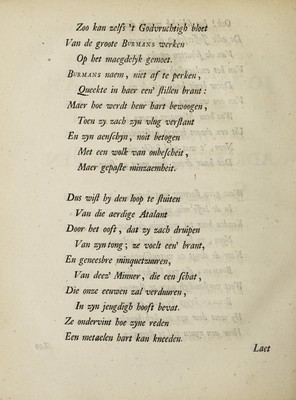 Zoo kan zelfs 't Godvruchtigh bloet
Van de groote BURMANS werken
Op het maegdelyk gemoet.
BURMANS naem, niet af te perken,
Queekte in haer een' stillen brant:
Maer hoe werdt heur hart bewoogen,
Toen zy zach zyn vlug verstant
En zyn aenschyn, noit betogen
Met een wolk van onbescheit,
Maer gepaste minzaemheit.
Dus wist hy den hop te stuiten
Van die aerdige Atalant
Door het ooft, dat zy zach druipen
Van zyn tong; ze voelt een' brant,
En geneesbre minquetzuuren,
Van deez' Minner, die een schat,
Die onze eeuwen zal verduuren,
In zyn jeugdigh hooft bevat.
Ze ondervint hoe zyne reden
Een metaelen hart kan kneeden.
Laet